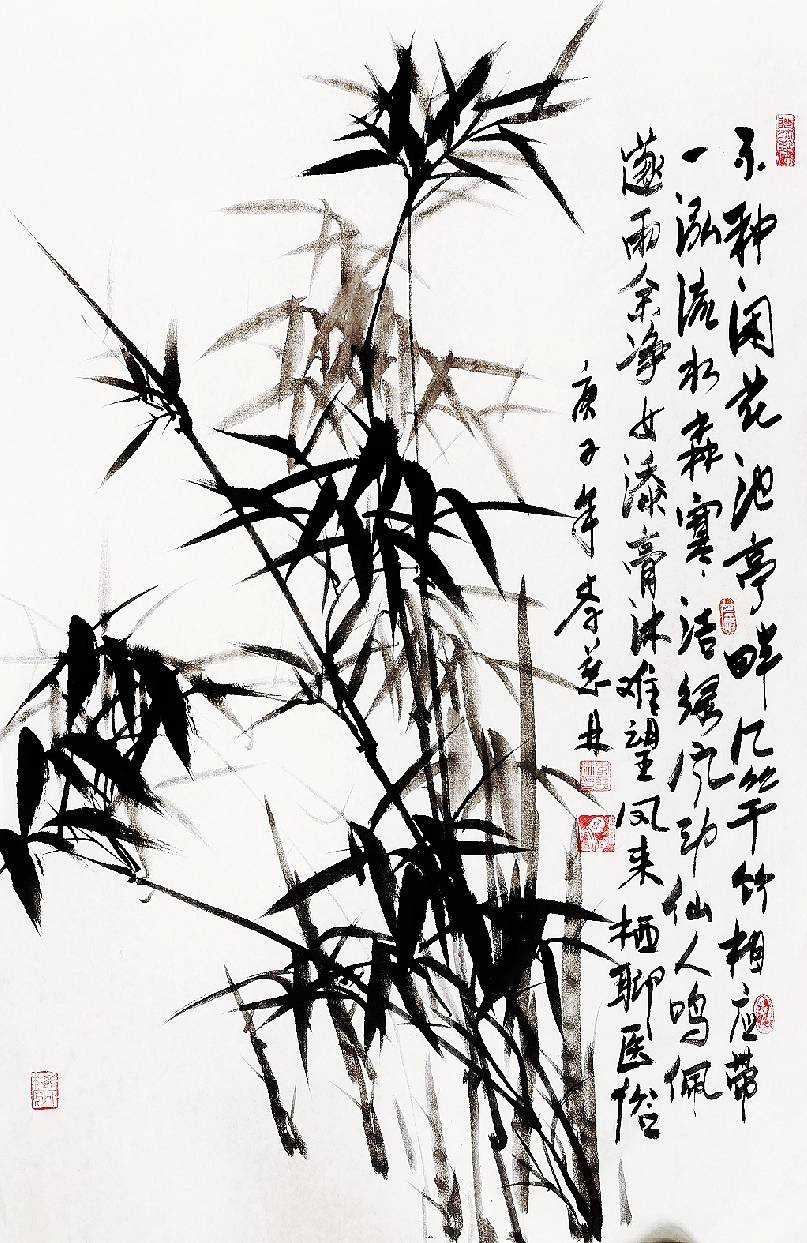 不种闲花池亭畔几竿竹相应带
一泓流水森寒洁绿风动仙人鸣佩
遂雨余净女添膏沐难望凤来栖聊医俗
庚子年李林